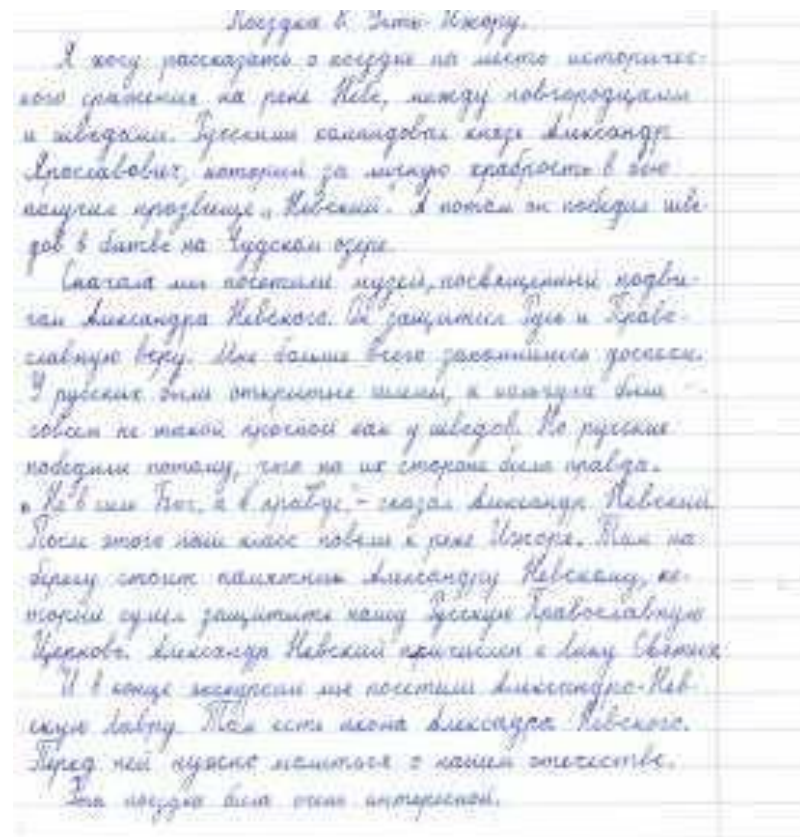 Поездка в Усть-Ижору.
Я хочу рассказать о поездке на место историчес-
кого сражения на реке Неве, между новгородцами
и шведами. Русскими командовал князь Александр
Ярославович, который за личную храбрость в бою
получил прозвище „Невский". А потом он победил шве-
дов в битве на Чудском озере.
Сначала мы посетили музей, посвященный подви-
гам Александра Невского. Он защитил Русь и Право-
славную веру. Мне больше всего запомнились доспехи.
У русских были открытые шлемы, а кольчуга была
совсем не такой прочной как у шведов. Но русские
победили потому, что на их стороне была правда.
„Не в силе Бог, а в правде", - сказал Александр Невский.
После этого наш класс повели к реке Ижоре. Там на
берегу стоит памятник Александру Невскому, ко-
торый сумел защитить нашу Русскую Православную
Церковь. Александр Невский причислен к лику Святых.
И в конце экскурсии мы посетили Александро-Нев-
скую Лавру. Там есть икона Алексадра Невского.
Перед ней нужно молиться о нашем отечестве.
Эта поездка была очень интересной.